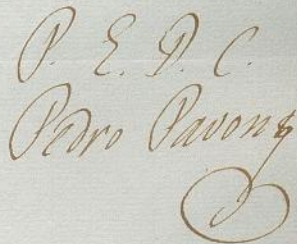 P. E. D. C.
Pedro Pavon